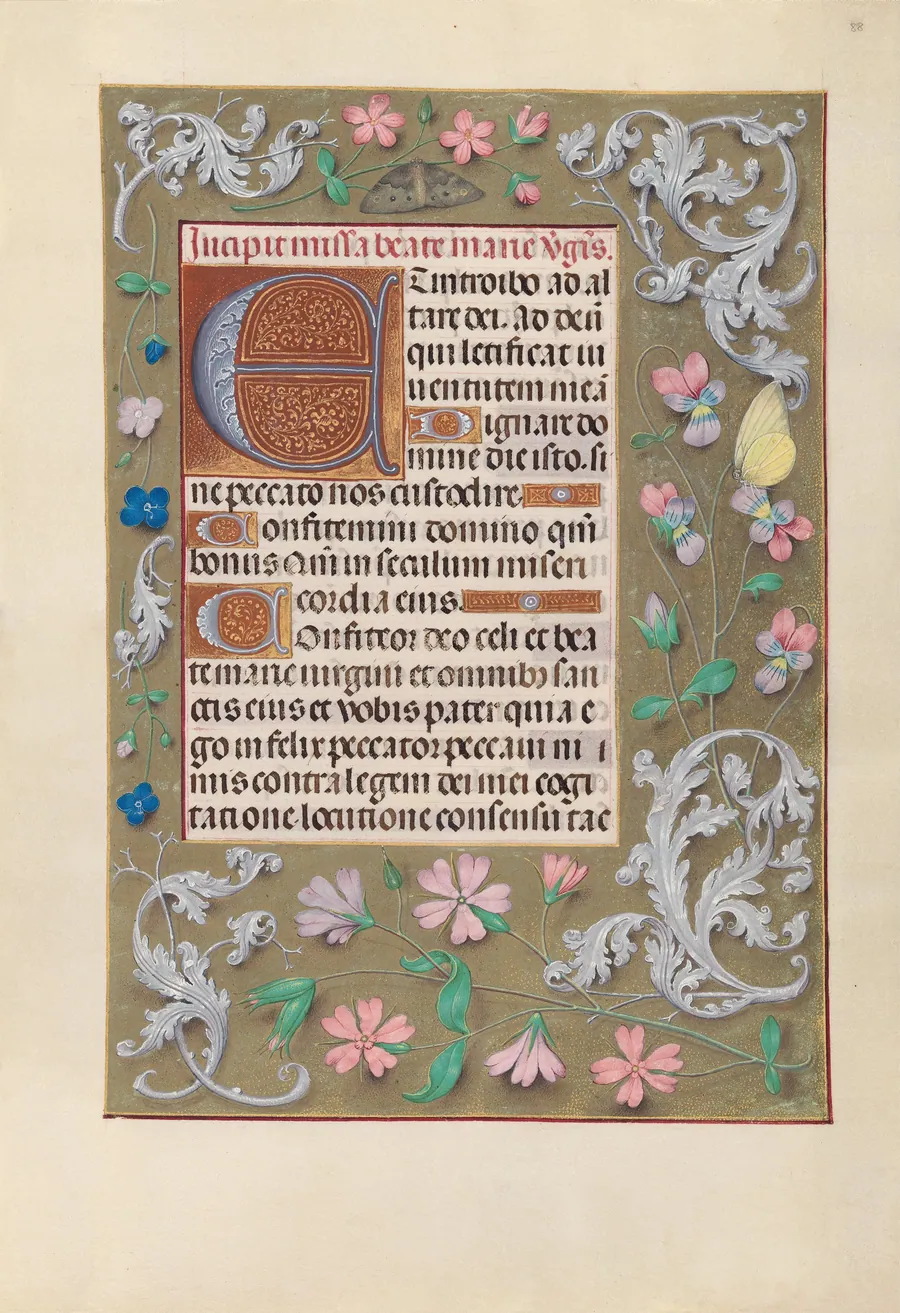 88
Incipit missa beate marie v̄gīs.
Et introibo ad al
tare dei. Ad deū
qui letificat iu
uentutem meā
Dignare do
mine die isto. si
ne peccato nos custodire
Confitemini domino qm̄
bonus Qm̄ in seculum miseri
cordia eius.
Confiteor deo celi et bea
te marie uirgini et omnibꝫ san
ctis eius et vobis pater quia e
go infelix peccator peccaui ni i
mis contra legem dei mei cogi
tatione locutione consensu tac